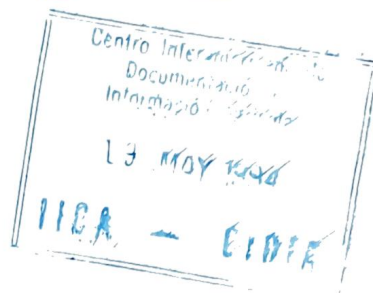 Centro Interamericano de
Documentación
Información Agrícola
13 MAY
IICA — CIDIA